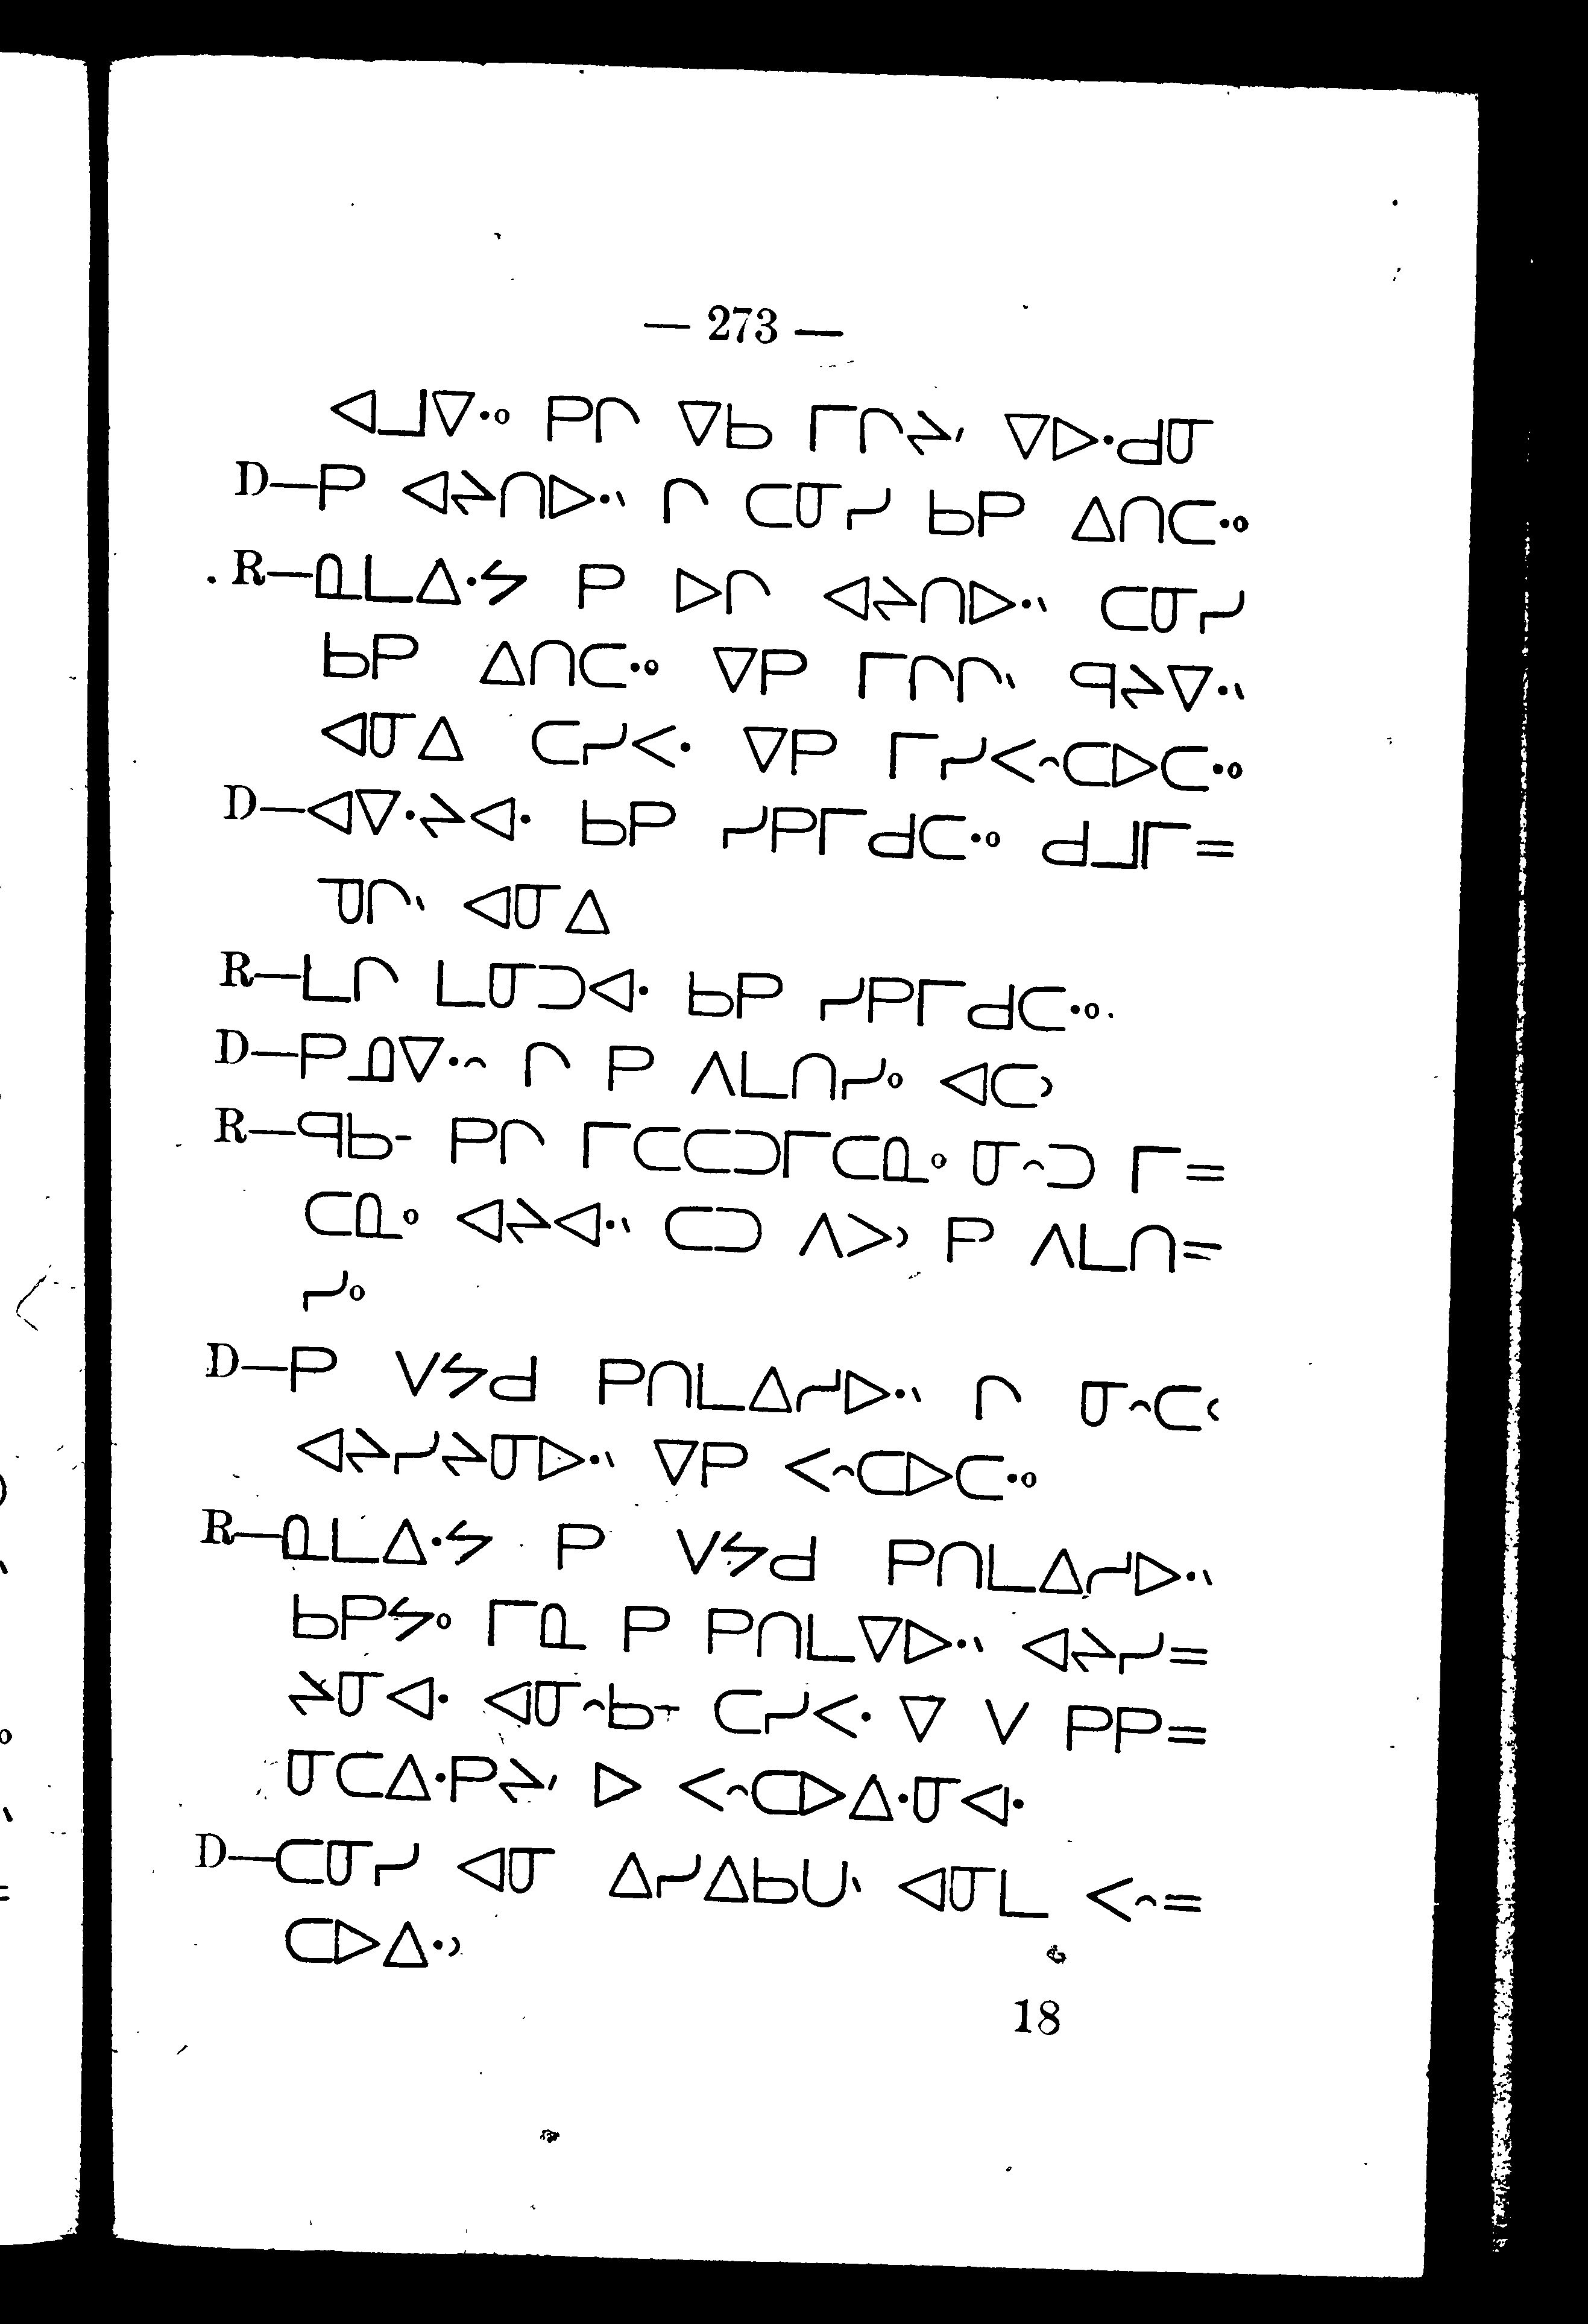 — 273 —
ᐊᒧᐁᐧᐤ ᑭᒋ ᐁᑲ ᒥᒋᔨᐟ ᐁᐅᐧᑯᓂ
D—ᑭ ᐊᔨᑎᐅᐧᐠ ᒋ ᑕᓂᓯ ᑲᑭ ᐃᑎᑕᐧᐤ
R—ᓇᒪᐃᐧᔭ ᑭ ᐅᒋ ᐊᔨᑎᐅᐧᐠ ᑕᓂᓯ
ᑲᑭ ᐃᑎᑕᐧᐤ ᐁᑭ ᒥᒋᒋᐠ ᑫᔨᐁᐧᐠ
ᐊᓂᐃ ᑕᓯᐸᐧ ᐁᑭ ᒥᓯᐸᐢᑕᐅᑕᐧᐤ
D—ᐊᐁᐧᔨᐊᐧ ᑲᑭ ᓯᑭᒥᑯᑕᐧᐤ ᑯᒧᒥ=
ᓀᒋᐠ ᐊᓂᐃ
R—ᒪᒋ ᒪᓂᑐᐊᐧ ᑲᑭ ᓯᑭᒥᑯᑕᐧᐤ.
D—ᑭᓄᐁᐧᐢ ᒋ ᑭ ᐱᒪᑎᓯᐤ ᐊᑕᐣ
R—ᑫᑲᐨ ᑭᒋ ᒥᑕᑕᑐᒥᑕᓇᐤ ᓂᐢᑐ ᒥ=
ᑕᓇᐤ ᐊᔨᐊᐧᐠ ᑕᑐ ᐱᐳᐣ ᑭ ᐱᒪᑎ=
ᓯᐤ
D—ᑭ ᐯᔭᑯ ᑭᑎᒪᐃᓱᐅᐧᐠ ᒋ ᓂᐢᑕᑦ
ᐊᔨᓯᔨᓂᐅᐧᐠ ᐁᑭ ᐸᐢᑕᐅᑕᐧᐤ
R—ᓇᒪᐃᐧᔭ ᑭ ᐯᔭᑯ ᑭᑎᒪᐃᓱᐅᐧᐠ
ᑲᑭᔭᐤ ᒥᓇ ᑭ ᑭᑎᒪᐁᐅᐧᐠ ᐊᔨᓯ=
ᔨᓂᐊᐧ ᐊᓂᐢᑲᐨ ᑕᓯᐸᐧ ᐁ ᐯ ᑭᑭ=
ᓂᑕᐃᐧᑭᔨᐟ ᐅ ᐸᐢᑕᐅᐃᐧᓂᐊᐧ
D—ᑕᓂᓯ ᐊᓂ ᐃᓯᐃᑲᑌᐠ ᐊᓂᒪ ᐸᐢ=
ᑕᐅᐃᐧᐣ
18